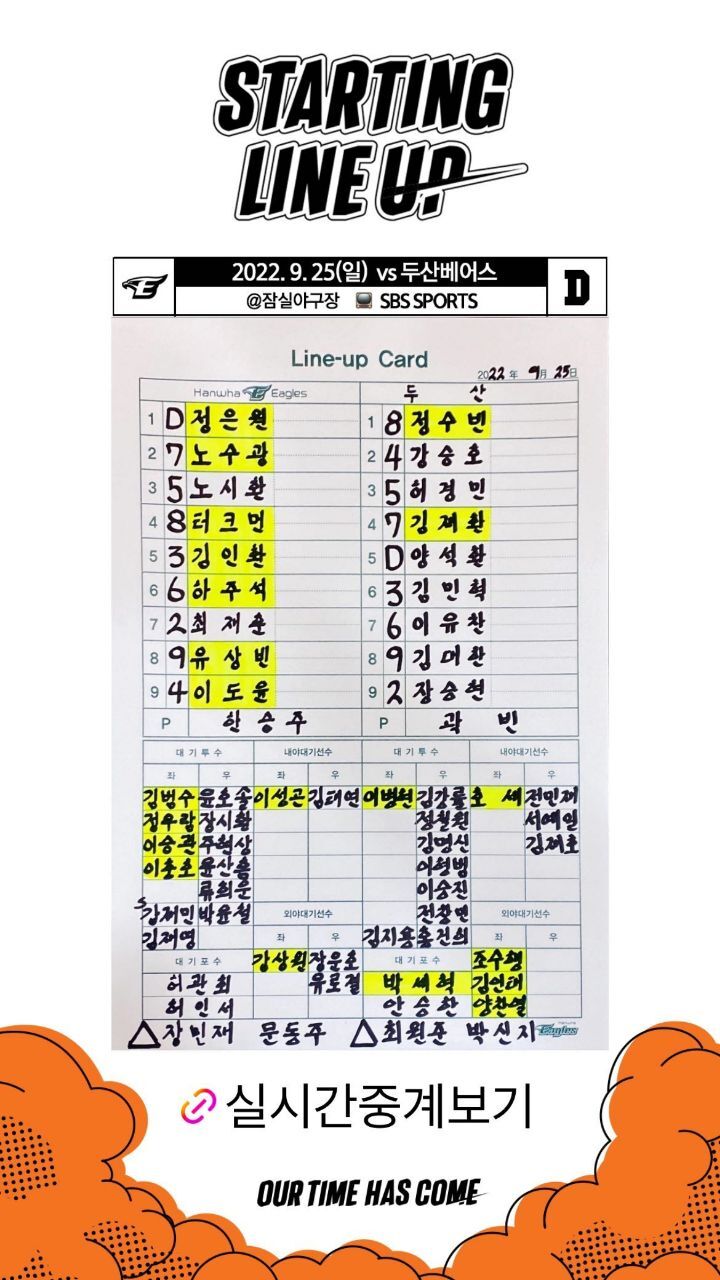 STARTING
LINE UP
2022. 9. 25(일) vs 두산베어스
@잠실야구장 SBS SPORTS
D
Line-up Card
2022 年 9月 25日
Hanwha Eagles 두 산
1 D 정은원 1 8 정수빈
2 7 노수광 2 4 강승호
3 5 노시환 3 5 허경민
4 8 터크먼 4 7 김재환
5 3 김인환 5 D 양석환
6 6 하주석 6 3 김민혁
7 2 최재훈 7 6 이유찬
8 9 유상빈 8 9 김대한
9 4 이도윤 9 2 장승현
P 한승주 P 곽 빈
대기투수 내야대기선수 대기투수 내야대기선수
좌 우 좌 우 좌 우 좌 우
김범수 윤호솔 이성곤 김태연 이병헌 김강률 호 세 전민재
정우람 장시환 정철원 서예일
이승관 주현상 김명신 김재호
이충호 윤산흠 이형범
류희운 이승진
김재민 박윤철 외야대기선수 전창민 외야대기선수
김재영 좌 우 김지용 홍건희 좌 우
대기포수 강상원 장운호 대기포수 조수행
허관회 유로결 박세혁 김인태
허인서 안승한 양찬열
△ 장민재 문동주 △ 최원준 박신지 Eagles
실시간중계보기
OUR TIME HAS COME